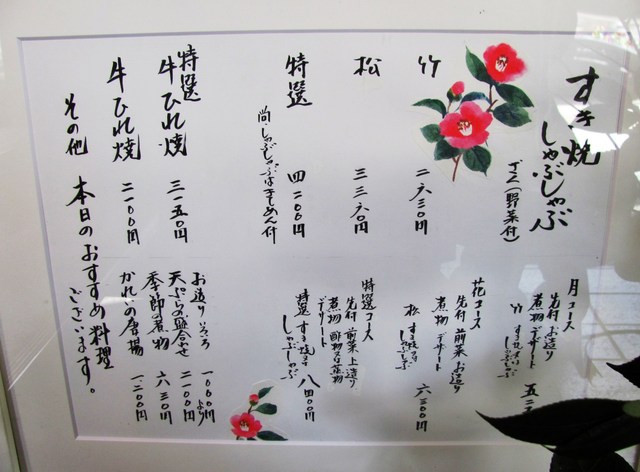 すき焼
しゃぶしゃぶ
(野菜付)
竹 二、六三〇円
松 三三六〇円
特選 四二〇〇円
尚しゃぶしゃぶはきしめん付
特選
牛ひれ焼 三一五〇円
牛ひれ焼 二一〇〇円
その他 本日のおすすめ料理
ございます。
月コース
先付 お造り
煮物 デザート
竹 すき焼又は
しゃぶしゃぶ
花コース
先付 前菜 お造り
煮物 デザート
松 すき焼又は
しゃぶしゃぶ 六三〇〇円
特選コース
先付 前菜 上造り
デザート
特選 すき焼又は
しゃぶしゃぶ 八四〇〇円
お造り いろいろ 一〇〇〇円より
天ぷらの盛合せ 二一〇〇円
季節の煮物 六三〇円
かれいの唐揚 一二〇〇円